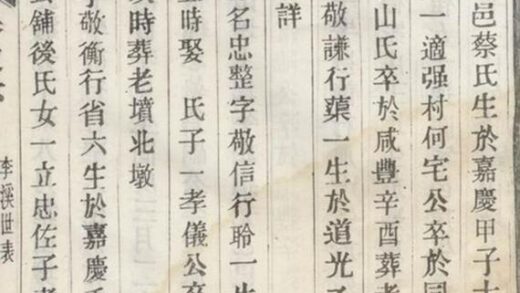 邑蔡氏生於嘉慶甲子
一適强村何宅公卒於同
山氏卒於咸豐辛酉葬老
敬謙行蕖一生於道光
詳
名忠整字敬信行聆一生
時娶 氏子一孝儀公卒
時葬老墳北墩
敬衡行省六生於嘉慶
公舖後氏女一立忠佐子孝
李溪世表